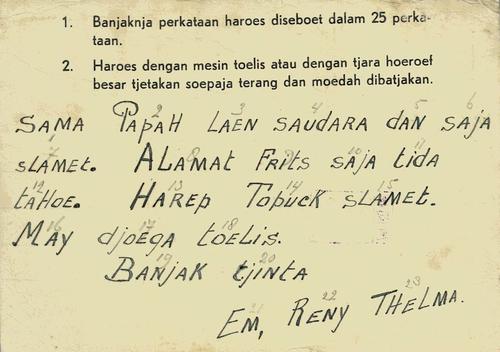 1. Banjaknja perkataan haroes diseboet dalam 25 perka-
taan.
2. Haroes dengan mesin toelis atau dengan tjara hoeroef
besar tjetakan soepaja terang dan moedah dibatjakan.
SAMA PAPAH LAEN SAUDARA DAN SAJA
SLAMET. ALAMAT FRITS SAJA TIDA
TAHOE. HAREP TOPUCK SLAMET.
MAY DJOEGA TOELIS.
BANJAK TJINTA
EM, RENY THELMA.